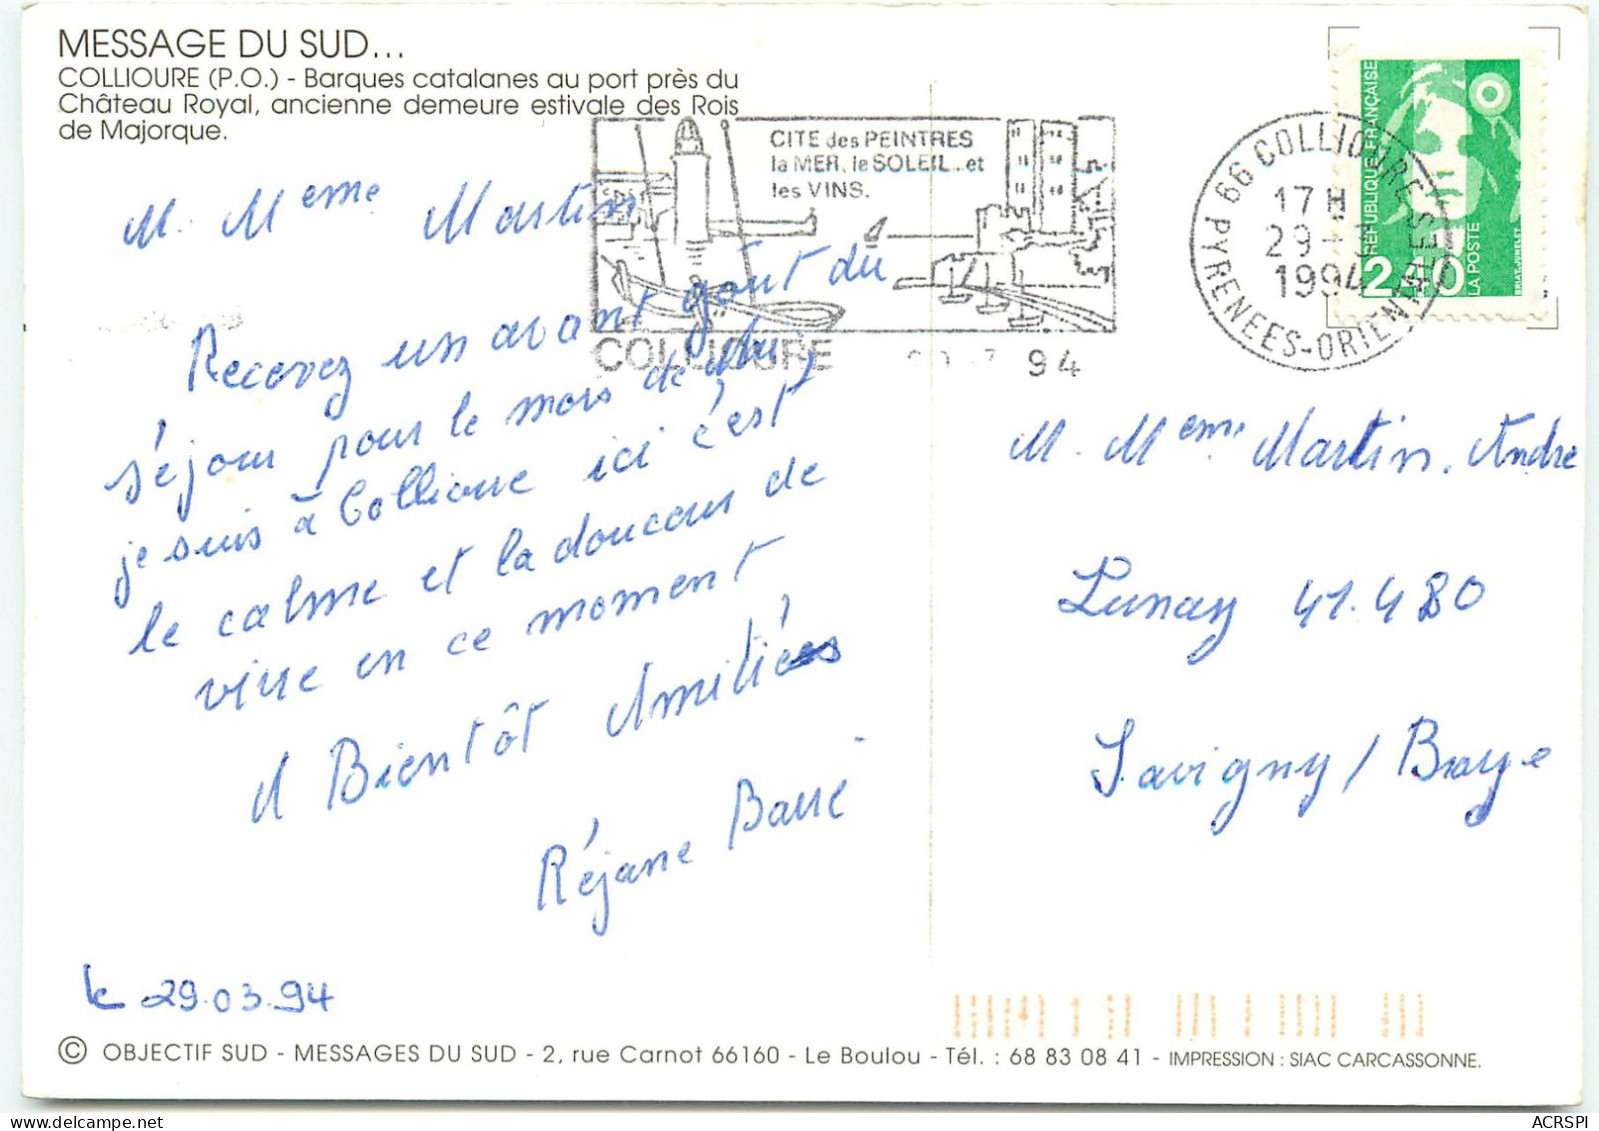 MESSAGE DU SUD...
COLLIOURE (P.O.) - Barques catalanes au port près du
Château Royal, ancienne demeure estivale des Rois
de Majorque.
CITE des PEINTRES
la MER, le SOLEIL... et
les VINS.
COLLIOURE
94
66 COLLIOURE
PYRENEES-ORIENTALES
17 H
29 -
1994
REPUBLIQUE FRANÇAISE
2,40
LA POSTE
M. Meme Martin
Recevez un avant gout du
séjour pour le mois de
je suis à Collioure ici c'est
le calme et la douceur de
vivre en ce moment
A Bientôt Amitiées
Réjane Barré
le 29.03.94
M. Meme Martin. Andre
Lunay 41.480
Savigny / Braye
© OBJECTIF SUD - MESSAGES DU SUD - 2, rue Carnot 66160 - Le Boulou - Tél. : 68 83 08 41 - IMPRESSION : SIAC CARCASSONNE.
ACRSPI